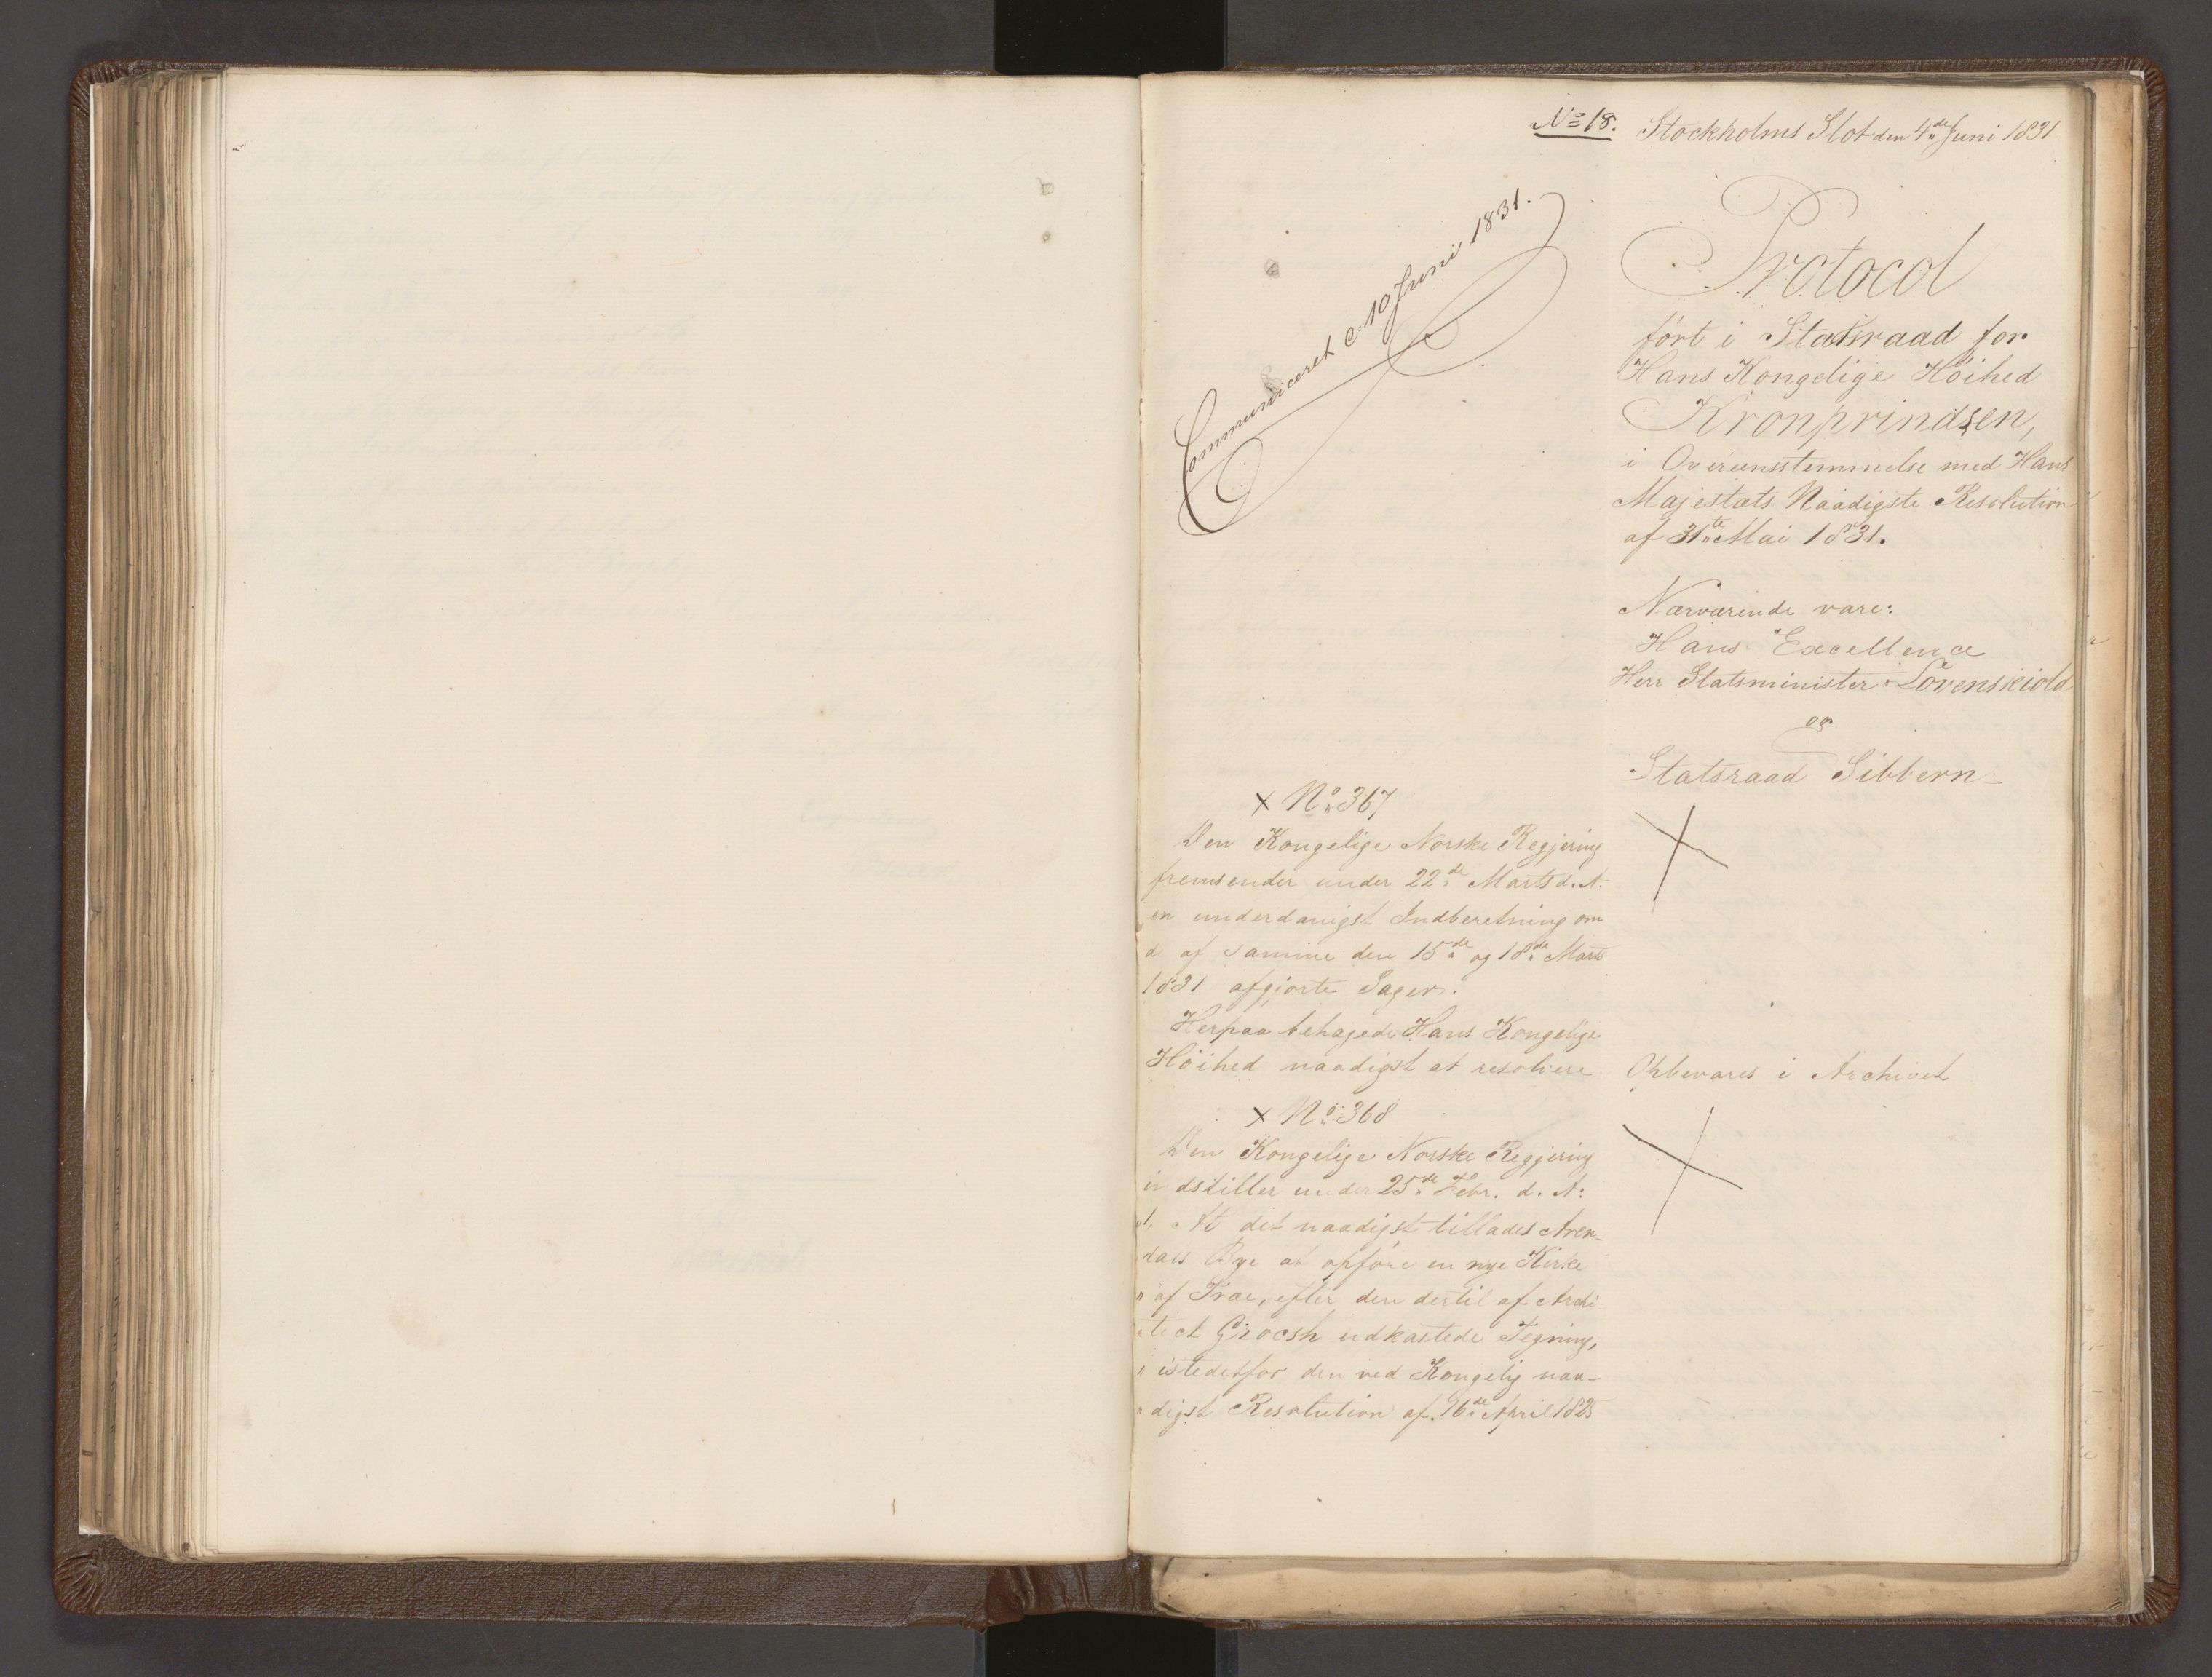 No 18. Stockholms Slot den 4de Juni 1831
Communiceret d. 10 Juni 1831.
Protocol
ført i Statsraad for
Hans Kongelige Höihed
Kronprindsen,
i Overeensstemmelse med Hans
Majestæts Naadigste Resolution
af 31te Mai 1831.
Nærværende vare:
Hans Excellence
Herr Statsminister Lövenskiold
og
Statsraad Sibbern
x No 367
Den Kongelige Norske Regjering
fremsender under 22de Marts d. A.
en underdanigst Indberetning om
de af samme den 15de og 18de Marts
1831 afgjorte Sager.
Herpaa behagede Hans Kongelige
Höihed naadigst at resolvere
Opbevares i Archivet
x No 368
Den Kongelige Norske Regjering
indstiller under 25de Febr. d. A:
At det naadigst tillades Aren-
dals Bye at opføre en nye Kirke
af Træe, efter den dertil af Archi
tect Grocsh udkastede Tegning,
istedetfor den ved Kongelig naa-
digst Resolution af 16de April 1825